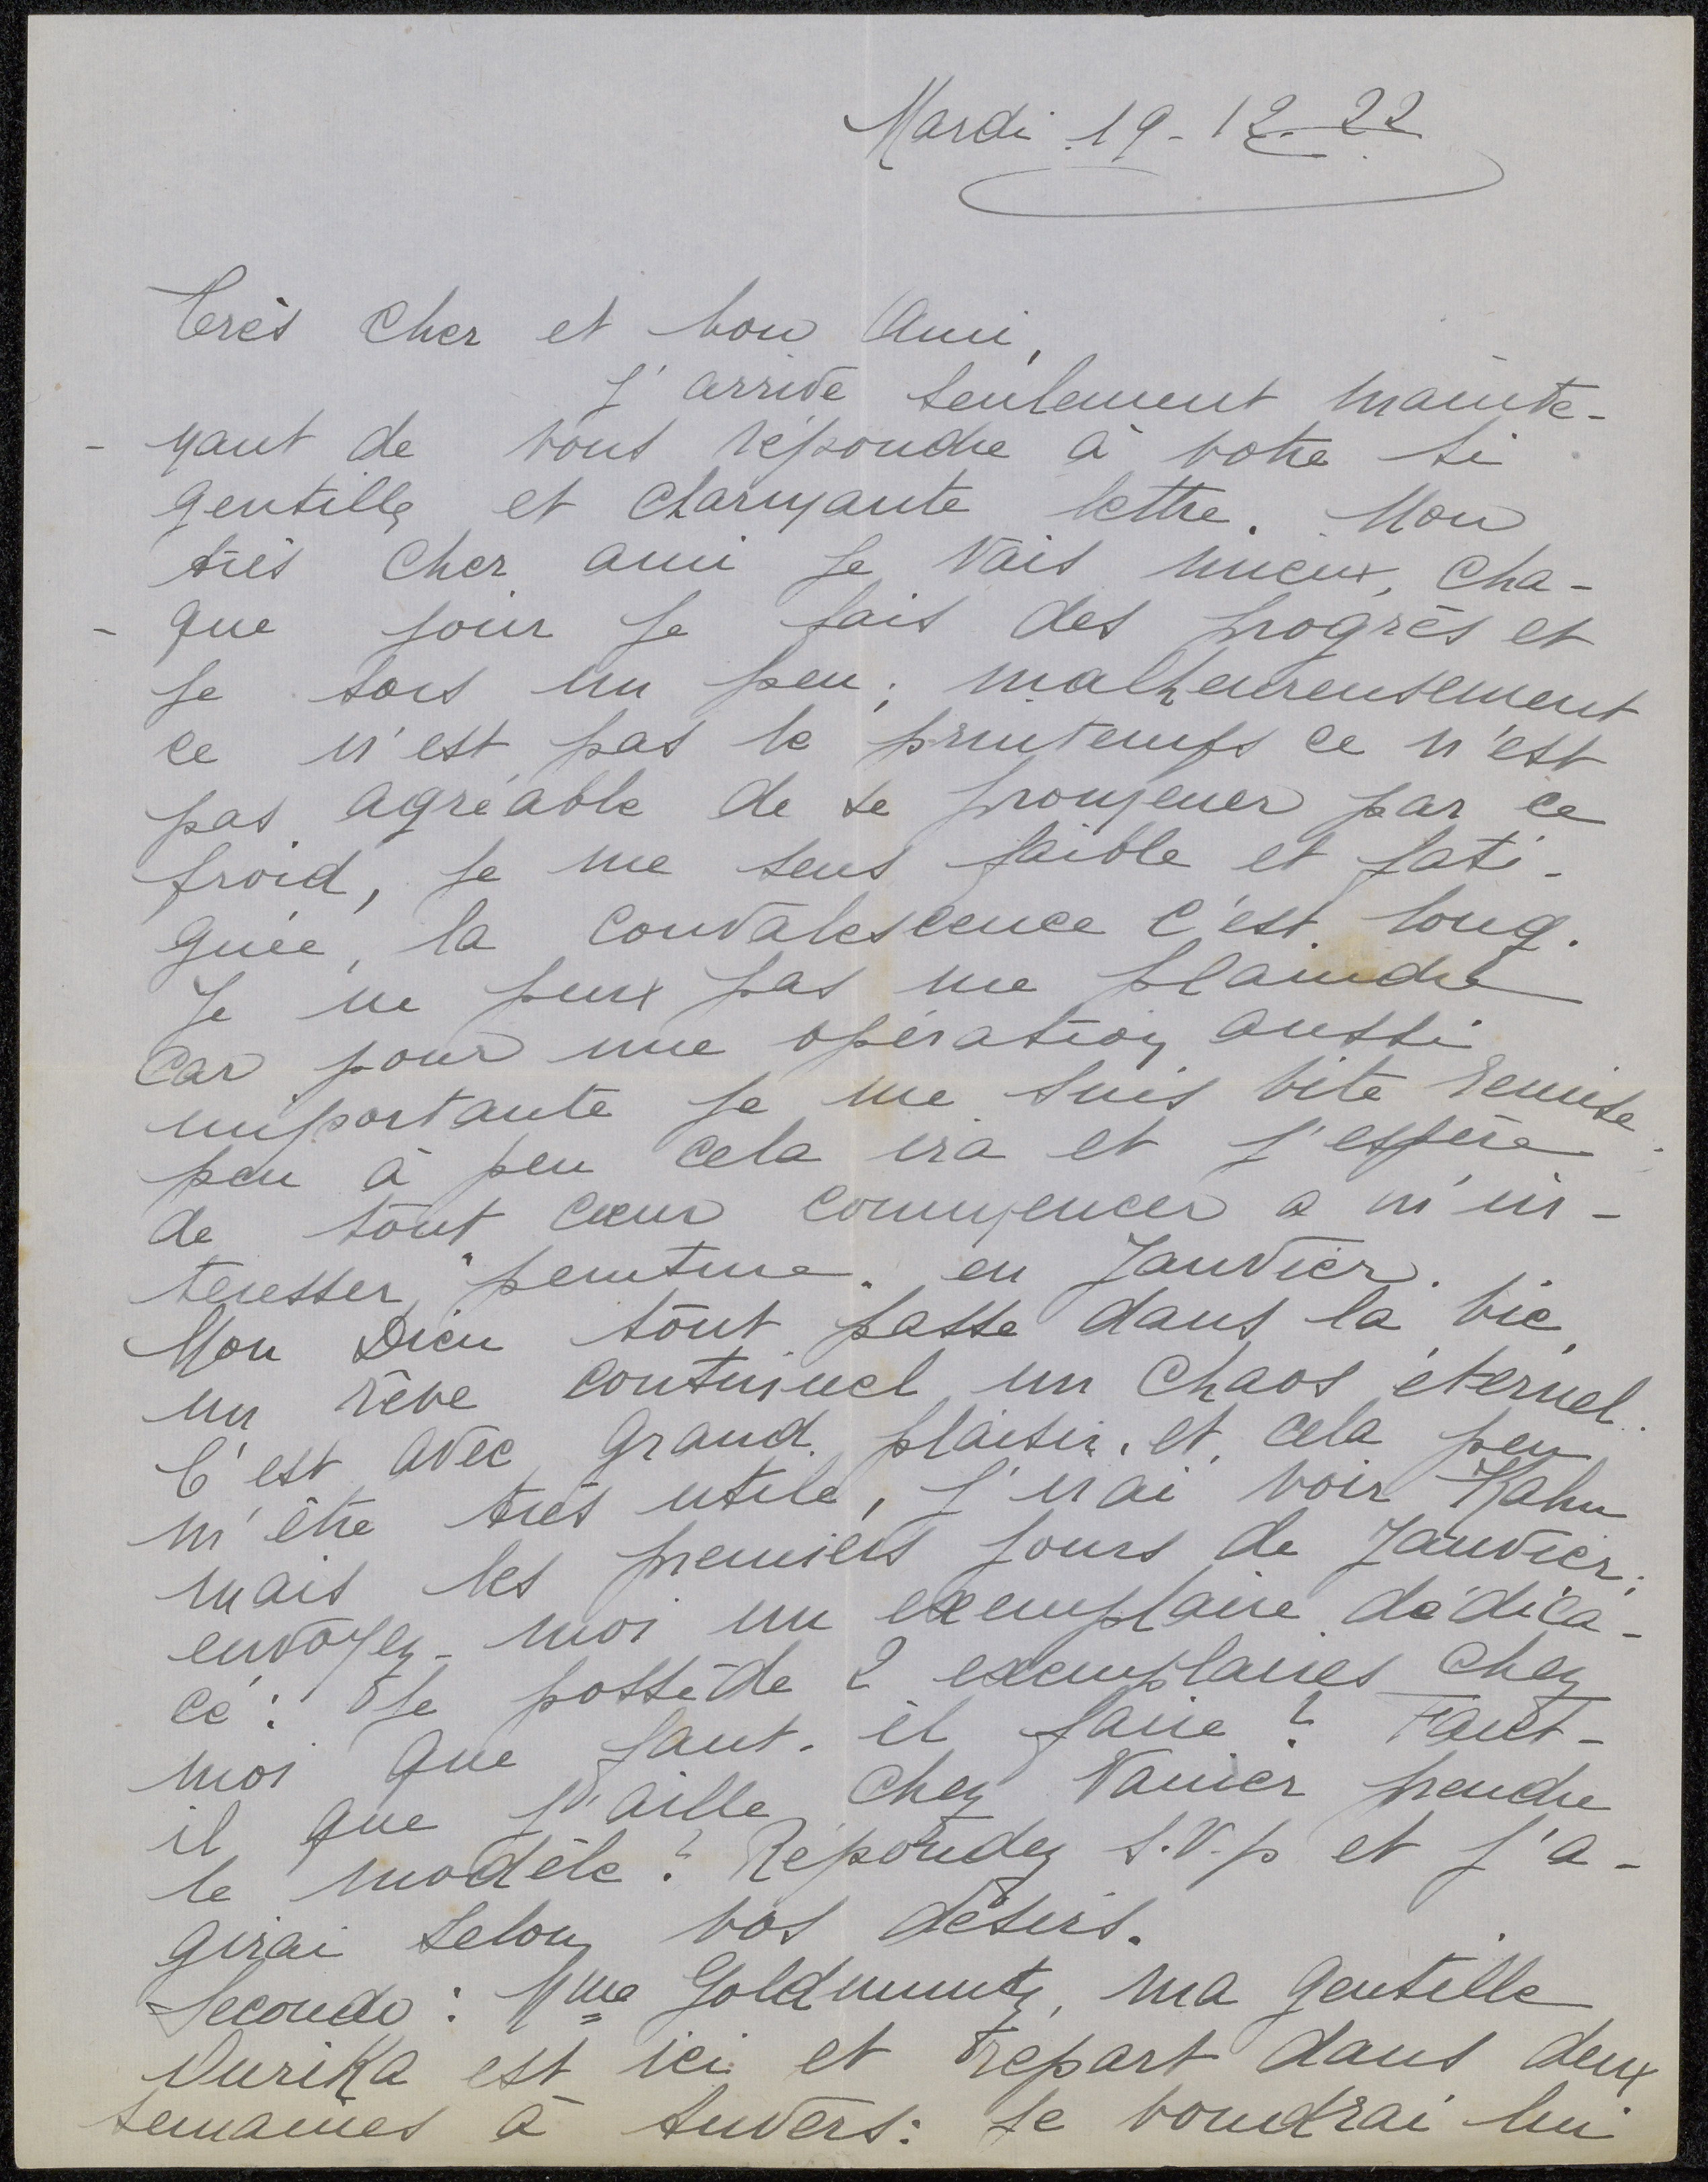 Mardi 19-12-22
Très Cher et bon Ami,
J'arrive seulement mainte-
- nant de vous répondre à votre si
gentille et charmante lettre. Mon
très cher ami je vais mieux, cha-
- que jour je fais des progrès et
je sors un peu; malheureusement
ce n'est pas le printemps ce n'est
pas agréable de se promener par ce
froid, je me sens faible et fati-
guée, la convalescence c'est long.
Je ne peux pas me plaindre
car pour une opération aussi
importante je me suis vite remise
peu à peu cela ira et j'espère
de tout cœur commencer a m'in-
teresser "peinture" en Janvier.
Mon Dieu tout passe dans la vie,
un rêve continuel un chaos éternel.
C'est avec grand plaisir, et cela peu
m'être très utile, j'irai voir Kahn
mais les premiers jours de Janvier;
envoyez-moi un exemplaire dédica-
cé: Je possède 2 exemplaires chez
moi que faut-il faire? Faut-
il que j'aille chez Vanier prendre
le modèle? Répondez S.V.p et j'a-
girai selon vos désirs.
Secondo: Mme Goldmuntz, ma gentille
Durika est ici et repart dans deux
semaines à Anvers: je voudrai lui